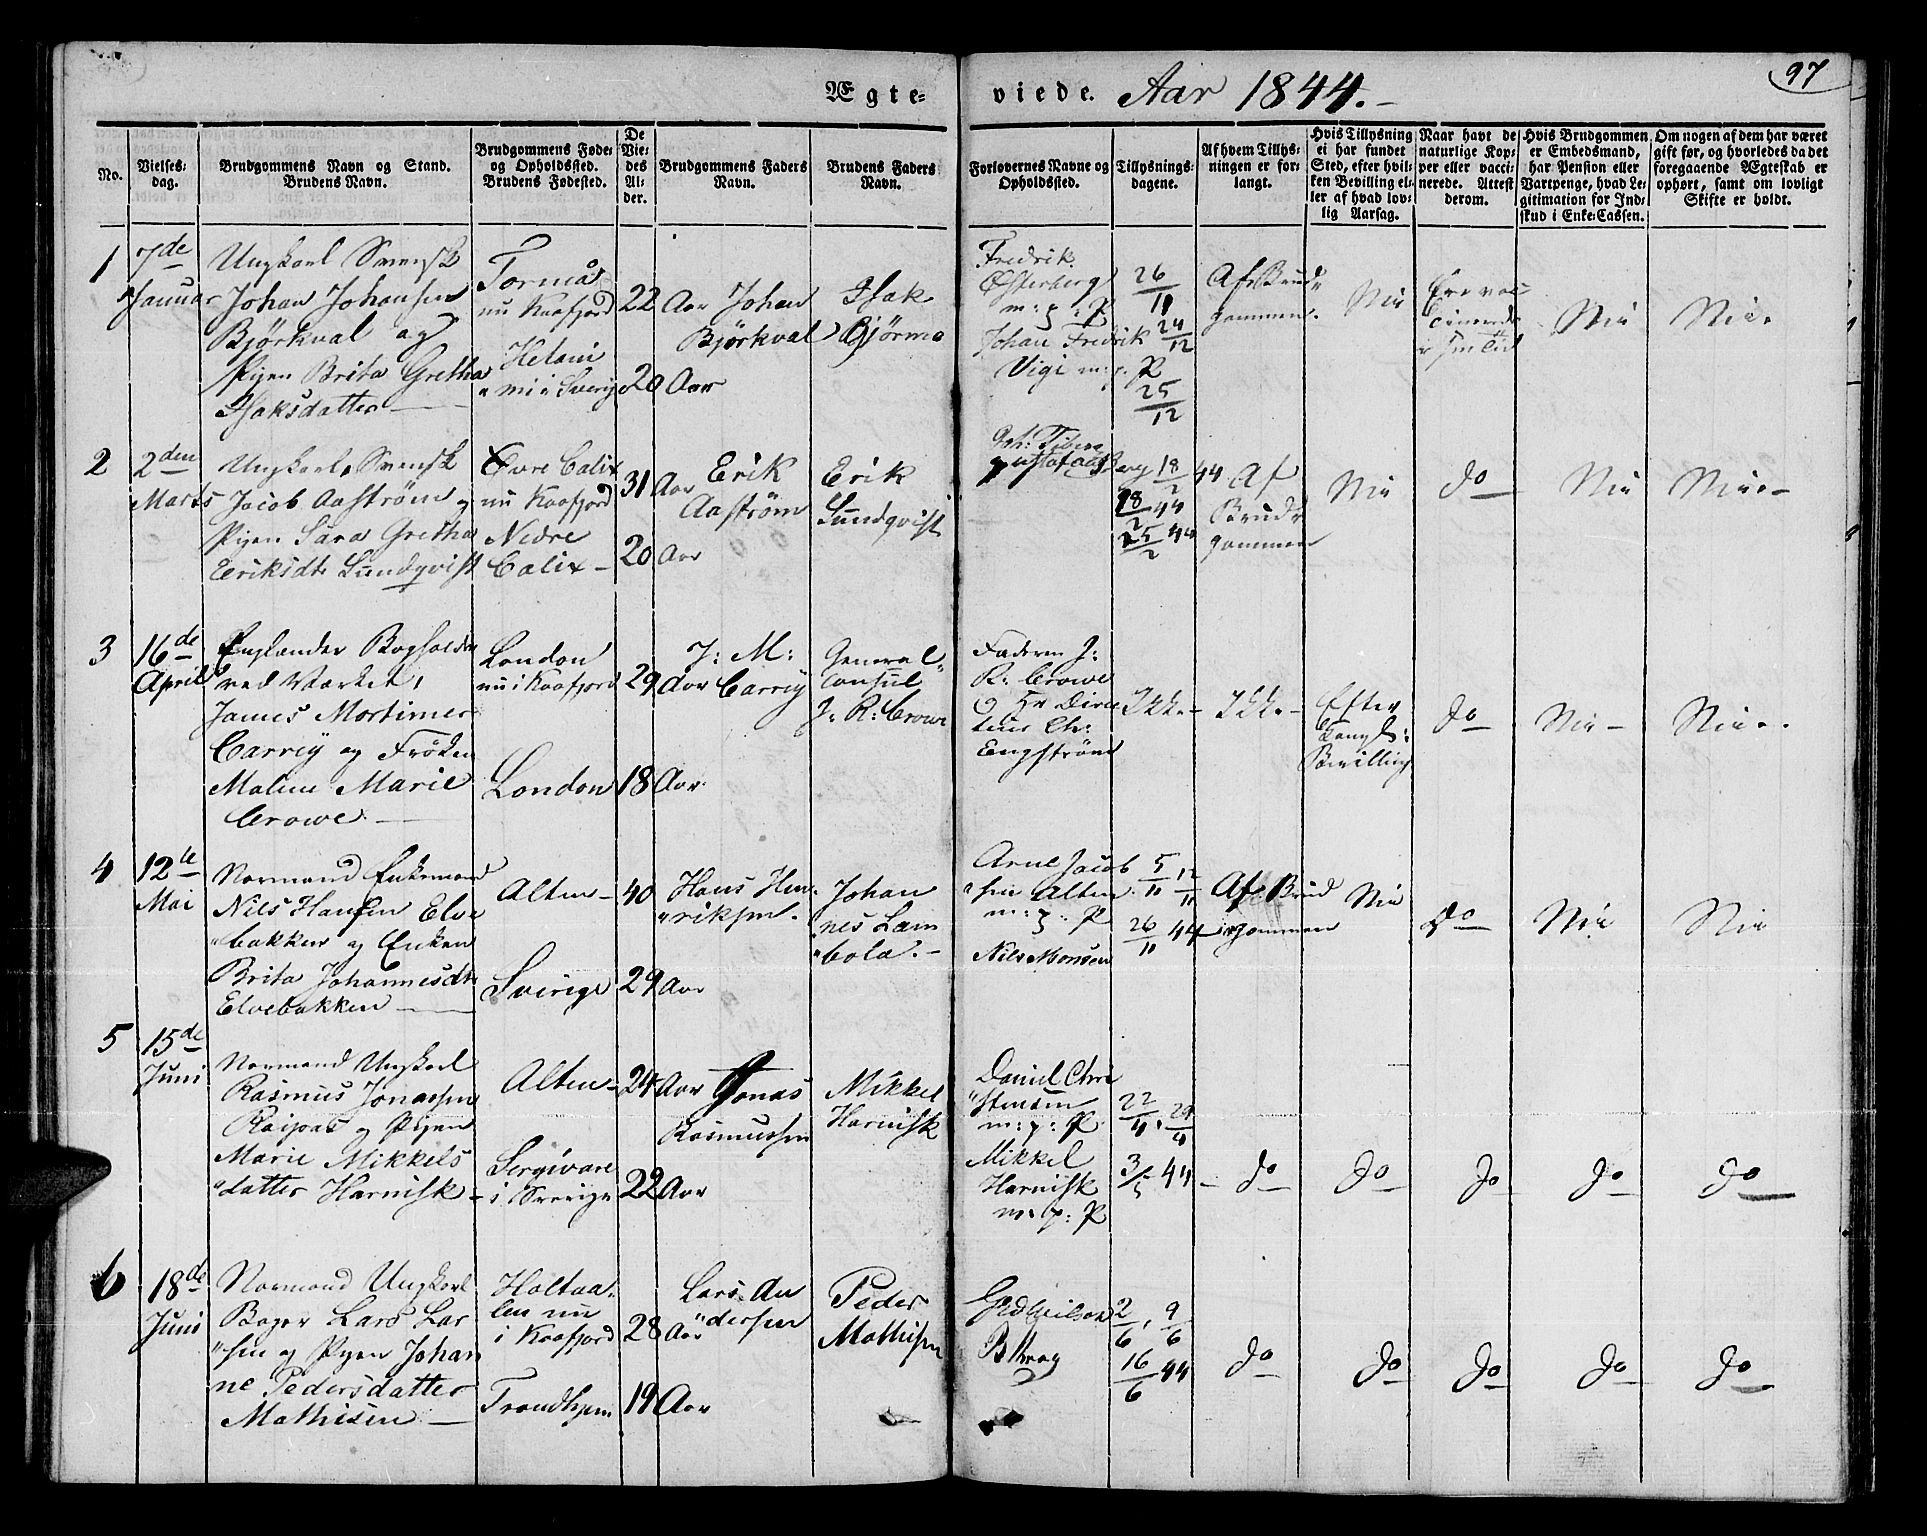 97
Ægte-
viede. Aar 1844.-
No.
Vielses-
dag.
Brudgommens Navn og Stand.
Brudens Navn.
Brudgommens Føde-
og Opholdssted.
Brudens Fødested.
De
Vie-
des
Al-
der.
Brudgommens Faders
Navn.
Brudens Faders
Navn.
Forlovernes Navne og
Opholdssted.
Tillysnings-
dagene.
Af hvem Tillys-
ningen er for-
langt.
Hvis Tillysning
ei har fundet
Sted, efter hvil-
ken Bevilling el-
ler af hvad lov-
lig Aarsag.
Naar havt de
naturlige Kop-
per eller vacci-
nerede. Attest
derom.
Hvis Brudgommen
er Embedsmand,
har Pension eller
Vartpenge, hvad Le-
gitimation for Ind-
skud i Enke-Cassen.
Om nogen af dem har været
gift før, og hvorledes da det
foregaaende Ægteskab er
ophørt, samt om lovligt
Skifte er holdt.
1
7de
Januar
Ungkarl Svensk
Johan Johansen
Björkval og
Pigen Brita Gretha
Isaksdatter
Torneå
nu Kaafjord
Hetani
emi i Sverige
22 Aar
20 Aar
Johan
Björkval
Isak
Björma
Fredrik
Österberg
m: p: P
Johan Fredrik
Vigi m: p. P
26/11
24/12
25/12
Af Brud-
gommen.
Nei
Ere vac-
cinerede
Nei
Nei.
2
2den
Marts
Ungkarl, Svensk
Jacob Aaström og
Pigen Sara Gretha
Eeriksdt. Sundqvist
Övre Calix
nu Kaafjord
Nedre
Calix -
31 Aar
20 Aar
Erik
Aaström
Erik
Sundqvist
18/2 44
18/2 44
25/2 44
Af
Brud-
gommen
Nei
do
Nei
Nei. -
3
16de
April
Englænder Bogholder
ved Værket,
James Mortimer
Carrey og Fröken
Malene Marie
Crowe. -
London
nu i Kaafjord
London
29 Aar
18 Aar.
J: M:
Carrey
General-
Consul
J: R: Crowe
Faderen J:
R: Crowe
og Hr Direc
teur Ch:
Engström
Ikke -
Ikke -
Efter
Kongl:
Bevilling
do
Nei -
Nei -.
4
12te
Mai
Normand Enkemand
Nils Hansen Elve
bakken og Enken
Brita Johannesdt.
Elvebakken -
Alten -
Sverige
40
29 Aar
Hans Hen-
riksen.
Johan
nes Lam
bola. -
Arne Jacob
sen Alten.
m: p: P
Nils Monsen
5/11 12/11
26/11 44
Af Brud
gommen
Nei
do
Nei
Nei
5
15de
Juni
Normand Ungkarl
Rasmus Jonassen
Raipas og Pigen
Marie Mikkels
datter Harnisk -
Alten -
i Sverige
24 Aar
22 Aar
Jonas
Rasmussen
Mikkel
Harnisk
Daniel Chri
stensen
m: p: P
Mikkel
Harnisk
m: p: P
22/4, 29/4
3/5 44
- do
do
do
do
do
6
18de
Juni
Normand Ungkarl
Bager Lars Lar
sen og Pigen Johan
ne Pedersdatter
Mathisen -
Holtaa-
len nu
i Kaafjord
Trondhjem
28 Aar
19 Aar
Lars An
dersen
Peder
Mathisen
2/6, 9/6
16/6 44
do
do
do
do
do